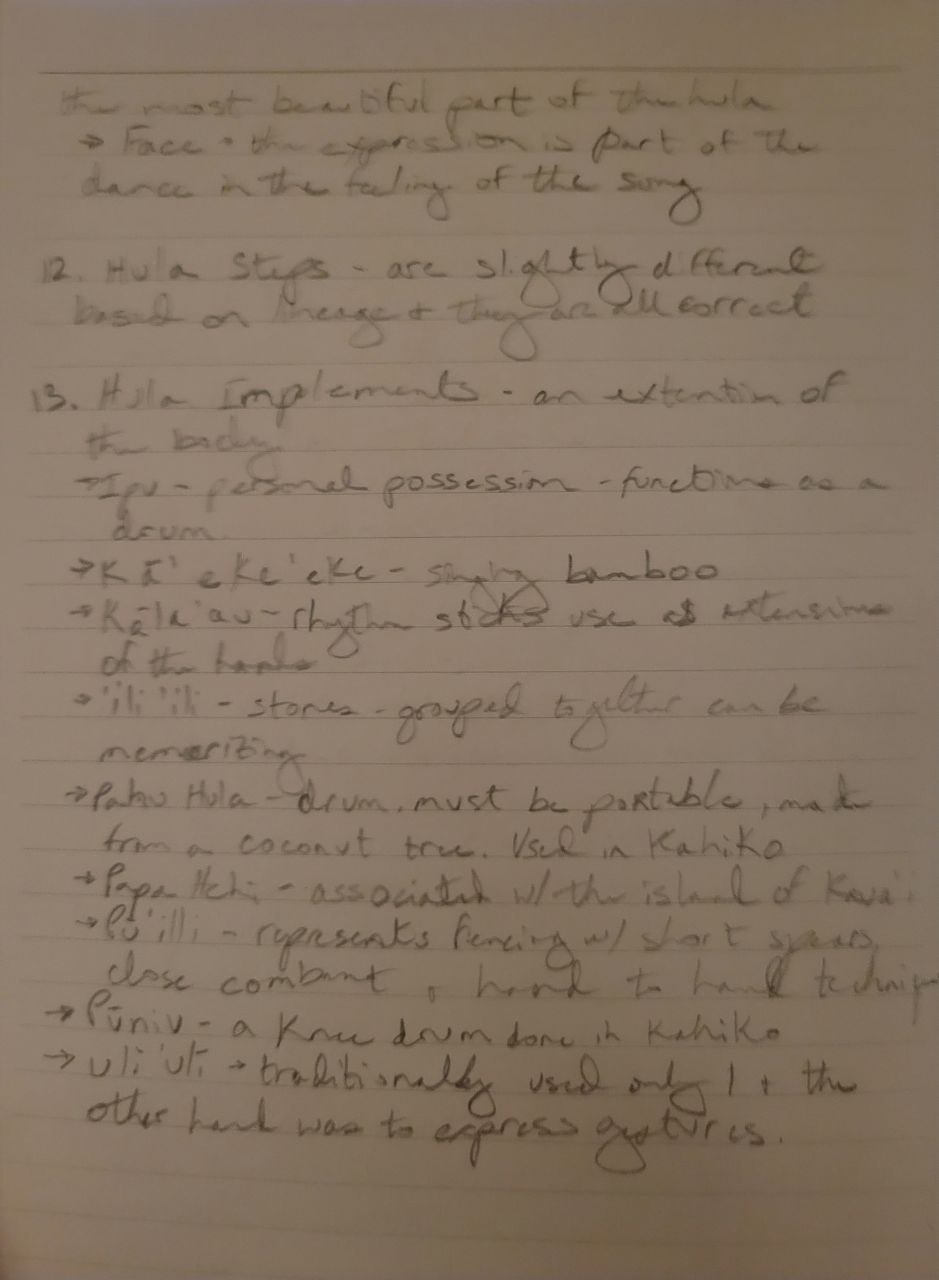 the most beautiful part of the hula
→ Face - the expression is part of the
dance in the feeling of the song
12. Hula Steps - are slightly different
based on lineage + they are all correct
13. Hula Implements - an extention of
the body
→ Ipu - personal possession - functions as a
drum.
→ Kā'eke'eke - singing bamboo
→ Kāla'au - rhythm sticks use as extensions
of the hands
→ 'ili'ili - stones - grouped together can be
memerizing
→ Pahu Hula - drum. must be portable, made
from a coconut tree. Used in Kahiko
→ Papa Hehi - associated w/ the island of Kaua'i
→ Pū'illi - represents fencing w/ short spears,
close combant, hand to hand techniq
→ Pūniu - a knee drum done in Kahiko
→ uli'uli → traditionally used only 1 + the
other hand was to express gestures.